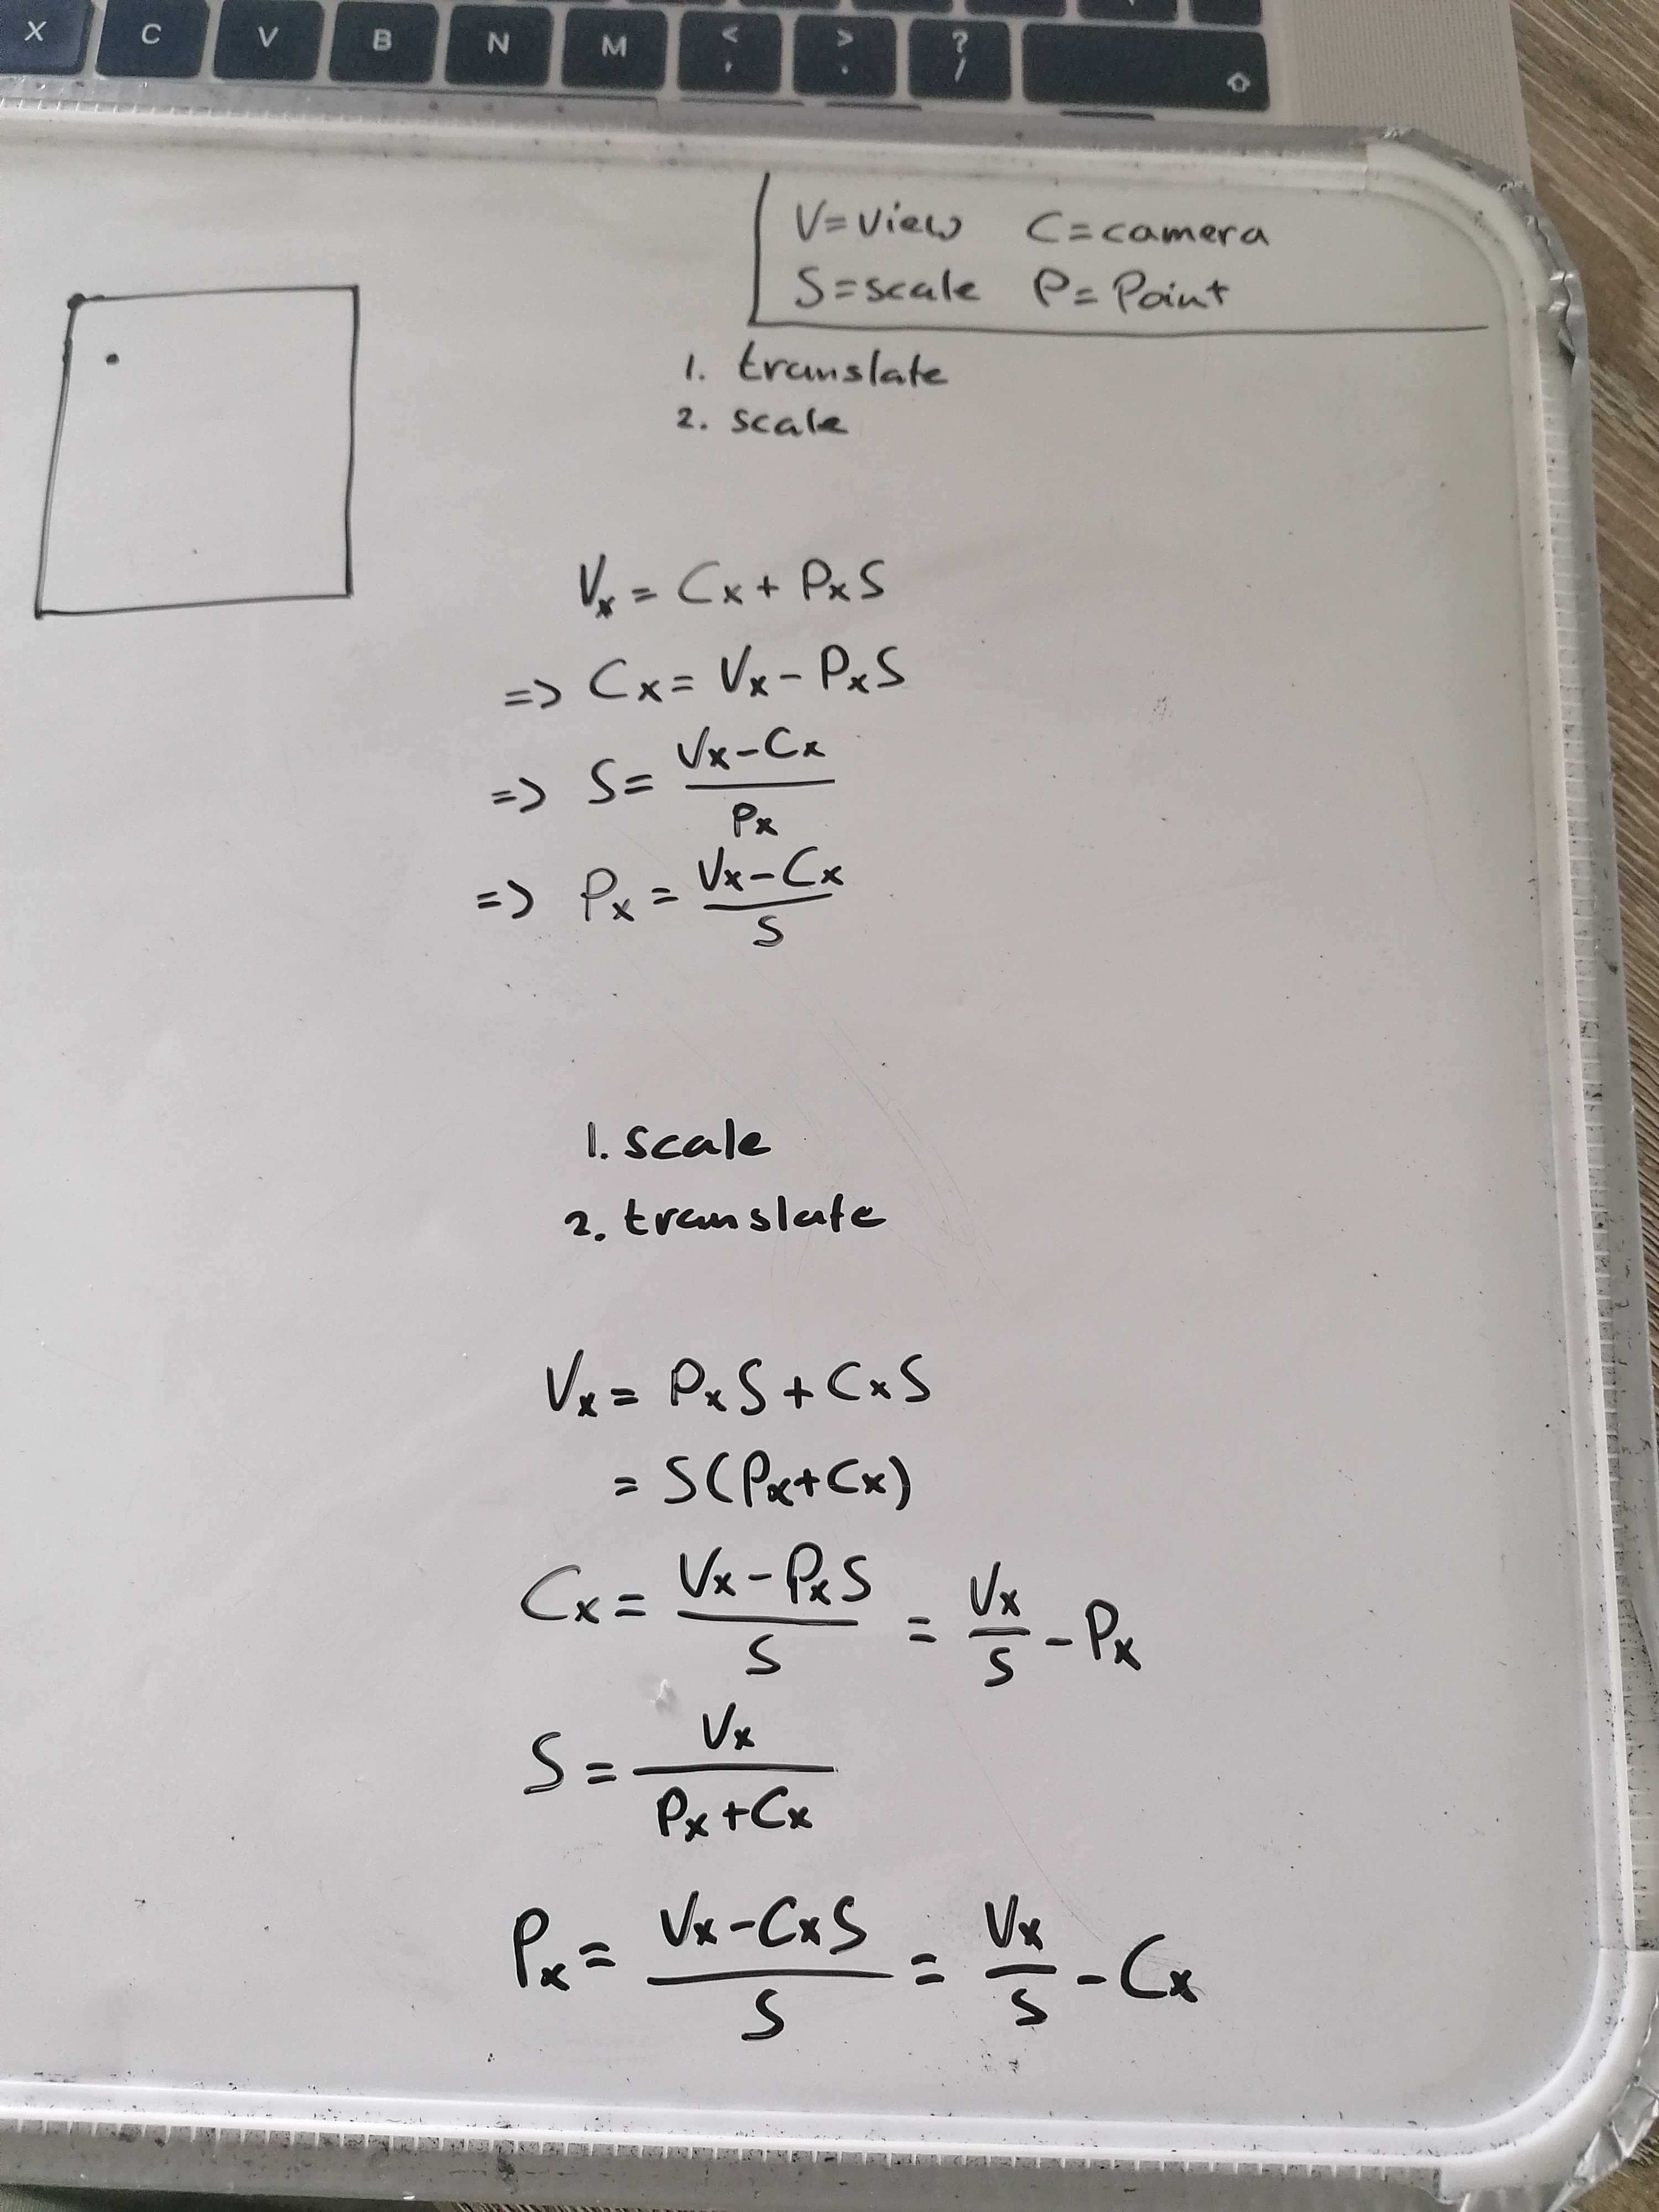 X C V B N M < , > . ? /
V=view C=camera
S=scale P=Point
1. translate
2. scale
Vx = Cx + PxS
=> Cx = Vx - PxS
=> S = (Vx - Cx) / Px
=> Px = (Vx - Cx) / S
1. scale
2. translate
Vx = PxS + CxS
= S(Px+Cx)
Cx = (Vx - PxS) / S = Vx / S - Px
S = Vx / (Px + Cx)
Px = (Vx - CxS) / S = Vx / S - Cx